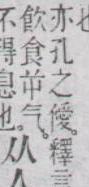 也
亦孔之僾。釋言
飲食屰气。
不得息也。从